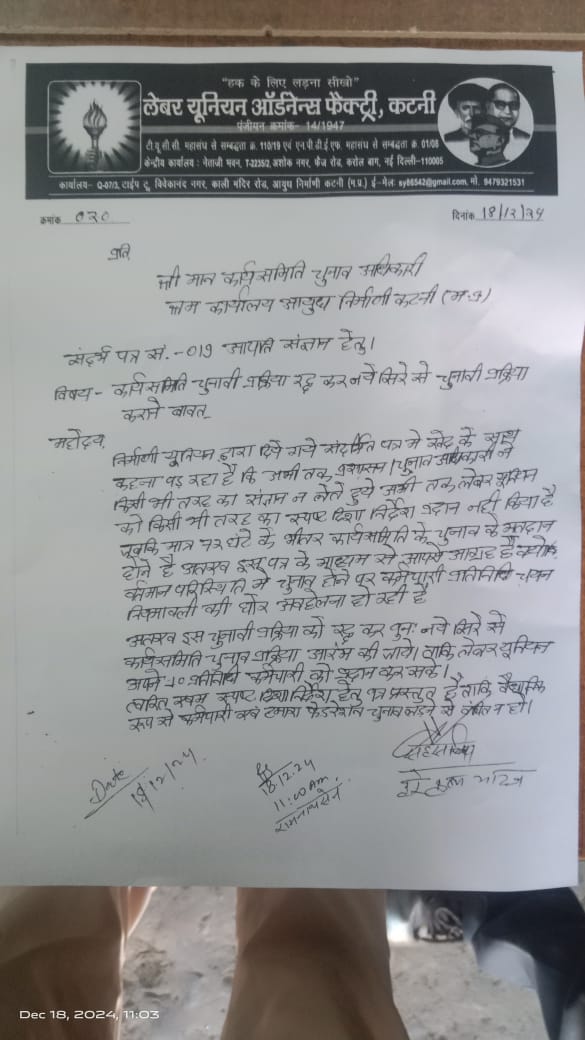 "हक के लिए लड़ना सीखो"
लेबर यूनियन ऑर्डनेन्स फैक्ट्री, कटनी
पंजीयन क्रमांक- 14/1947
टी.यू.सी.सी. महासंघ से सम्बद्धता क्र. 110/19 एवं एन.पी.डी.ई.एफ. महासंघ से सम्बद्धता क्र. 01/08
केन्द्रीय कार्यालय : नेताजी भवन, T-2235/2, अशोक नगर, फेज रोड, करोल बाग, नई दिल्ली-110005
कार्यालय- Q-07/3, टाईप टू, विवेकानंद नगर, काली मंदिर रोड, आयुध निर्माणी कटनी (म.प्र.) ई-मेल: sy86542@gmail.com, मो. 9479321531
क्रमांक 020
दिनांक 18/12/24
प्रति
श्री मान कार्य समिति चुनाव अधिकारी
श्रम कार्यालय आयुध निर्माणी कटनी (म.प्र)
संदर्भ पत्र सं.-019 आपत्ति संज्ञान हेतु।
विषय- कार्यसमिति चुनावी प्रक्रिया रद्द कर नये सिरे से चुनावी प्रक्रिया
कराने बावत्
महोदय,
निर्माणी यूनियन द्वारा दिये गये संदर्भित पत्र मे खेद के साथ
कहना पड़ रहा है कि अभी तक प्रशासन/चुनाव अधिकारी ने
किसी भी तरह का संज्ञान न लेते हुये अभी तक लेबर यूनियन
को किसी भी तरह का स्पष्ट दिशा निर्देश प्रदान नही किया है
जबकि मात्र 72 घंटे के भीतर कार्यसमिति के चुनाव के मतदान
होने है अतएव इस पत्र के माध्यम से आपसे आग्रह है क्योंकि
वर्तमान परिस्थिति मे चुनाव होने पर कर्मचारी प्रतिनिधि चयन
नियमावली की घोर अवहेलना हो रही है
अतएव इस चुनावी प्रक्रिया को रद्द कर पुनः नये सिरे से
कार्यसमिति चुनाव प्रक्रिया आरंभ की जाये। ताकि लेबर यूनियन
अपने 10 प्रतिनिधि कर्मचारी को प्रदान कर सके।
त्वरित स्पष्ट दिशा निर्देश हेतु पत्र प्रस्तुत है ताकि वैधानिक
रूप से कर्मचारी एवं हमारा फेडरेशन चुनाव लड़ने से वंचित न हो।
Date
18/12/24
18.12.24
11:00 Am.
रामनाथ सेन
Dec 18, 2024, 11:03